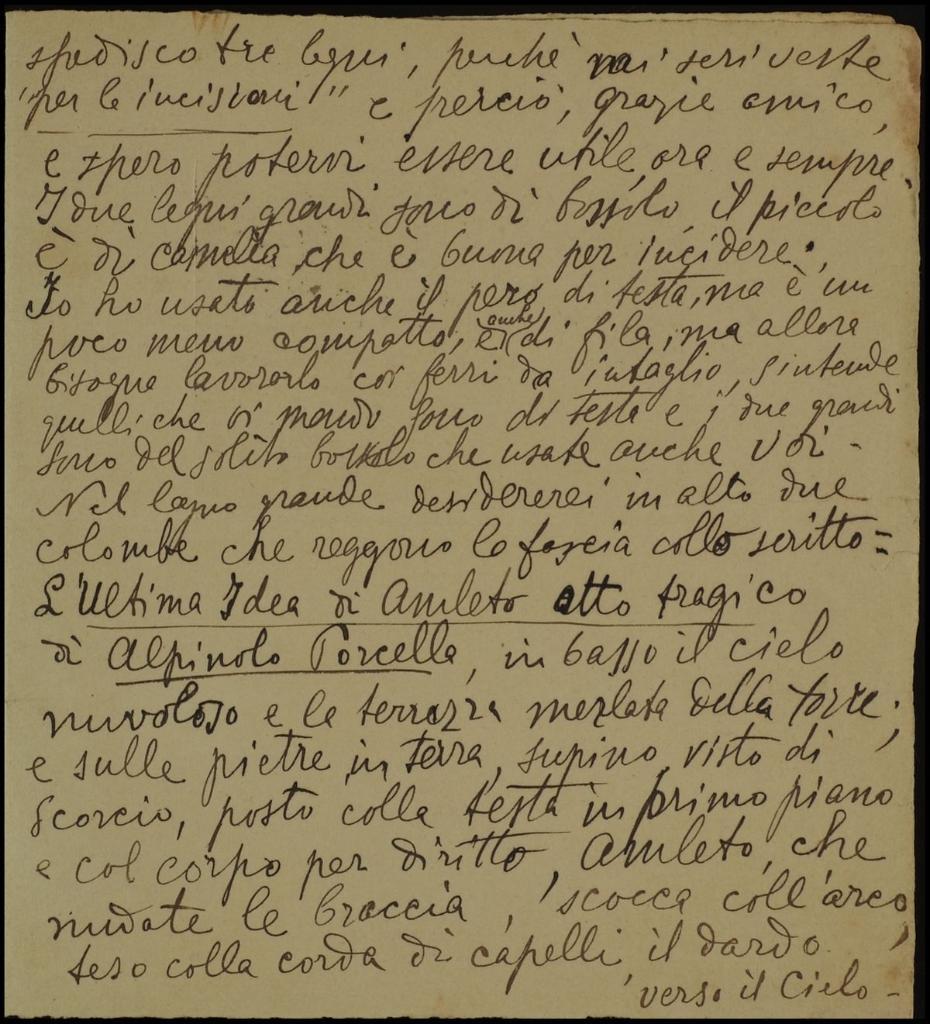 spedisco tre legni, perchè mi scriveste
"per le incisioni" e perciò, grazie amico,
e spero potervi essere utile, ora e sempre.
I due legni grandi sono di bossolo, il piccolo
è di camelia, che è buona per incidere.
Io ho usato anche il pero, di testa, ma è un
poco meno compatto, e anche di fila, ma allora
bisogna lavorarlo coi ferri da intaglio, s'intende
quelli che vi mando sono di testa e i due grandi
sono del solito bossolo che usate anche Voi -
Nel legno grande desidererei in alto due
colombe che reggono la fascia collo scritto =
L'Ultima Idea di Amleto atto tragico
di Alpinolo Porcella, in basso il cielo
nuvoloso e la terrazza merlata della torre;
e sulle pietre, in terra, supino, visto di
scorcio, posto colla testa in primo piano
e col corpo per diritto, Amleto, che
nudate le braccia, scocca coll'arco,
teso colla corda di capelli il dardo
verso il Cielo -